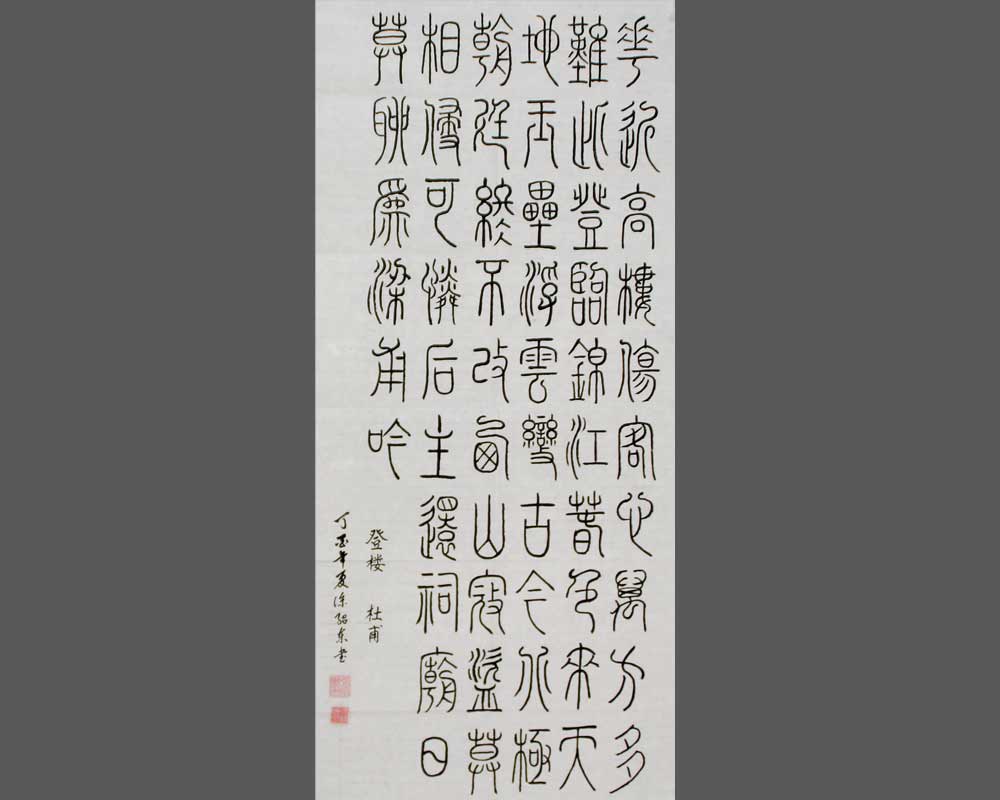 華近高樓傷客心萬方多
難此登臨錦江春色來天
地玉壘浮雲變古今北極
朝廷終不改西山寇盜莫
相侵可憐后主還祠廟日
莫聊為梁甫吟
登楼 杜甫
丁酉年夏东书